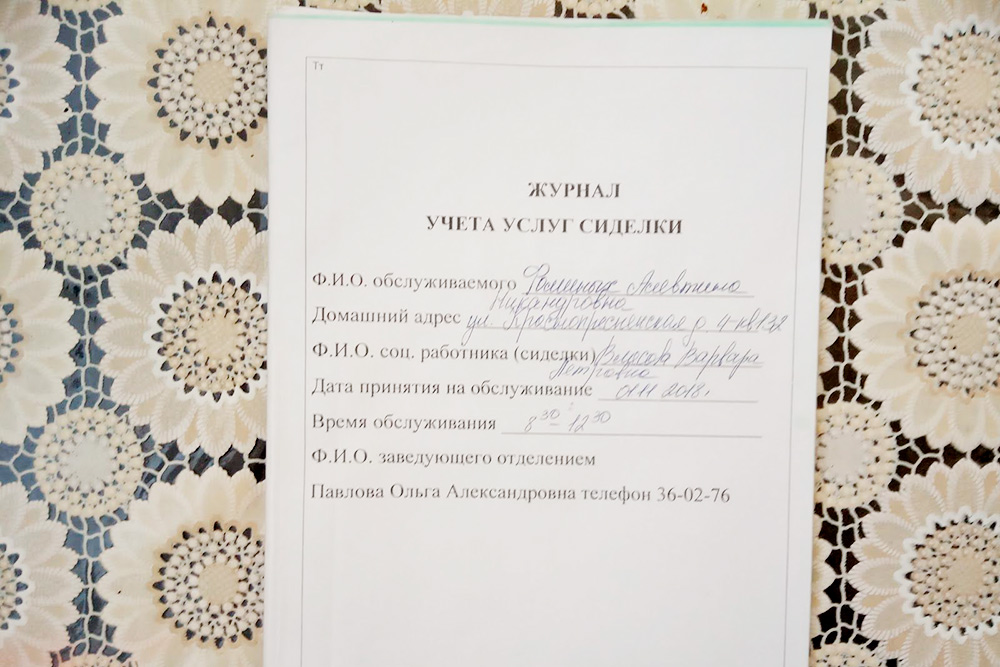 Тт
ЖУРНАЛ
УЧЕТА УСЛУГ СИДЕЛКИ
Ф.И.О. обслуживаемого Фоминых Алевтина
Никануровна
Домашний адрес ул. Краснопресненская д 4-кв132
Ф.И.О. соц. работника (сиделки) Власова Варвара
Петровна
Дата принятия на обслуживание 01.11 2018г.
Время обслуживания 8 30 - 12 30
Ф.И.О. заведующего отделением
Павлова Ольга Александровна телефон 36-02-76